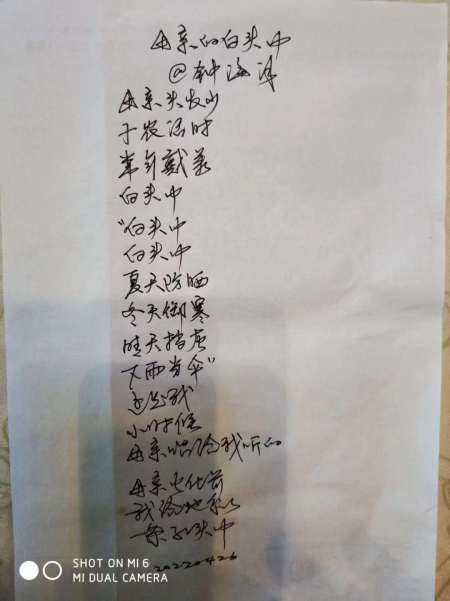 母亲的白头巾
@钟海洋
母亲头发少
干农活时
常年戴着
白头巾
“白头巾
白头巾
夏天防晒
冬天御寒
晴天挡灰
下雨当伞”
这是我
小时候
母亲唱给我听的
母亲火化前
我给她系了
一条红头巾
20220426
SHOT ON MI 6
MI DUAL CAMERA